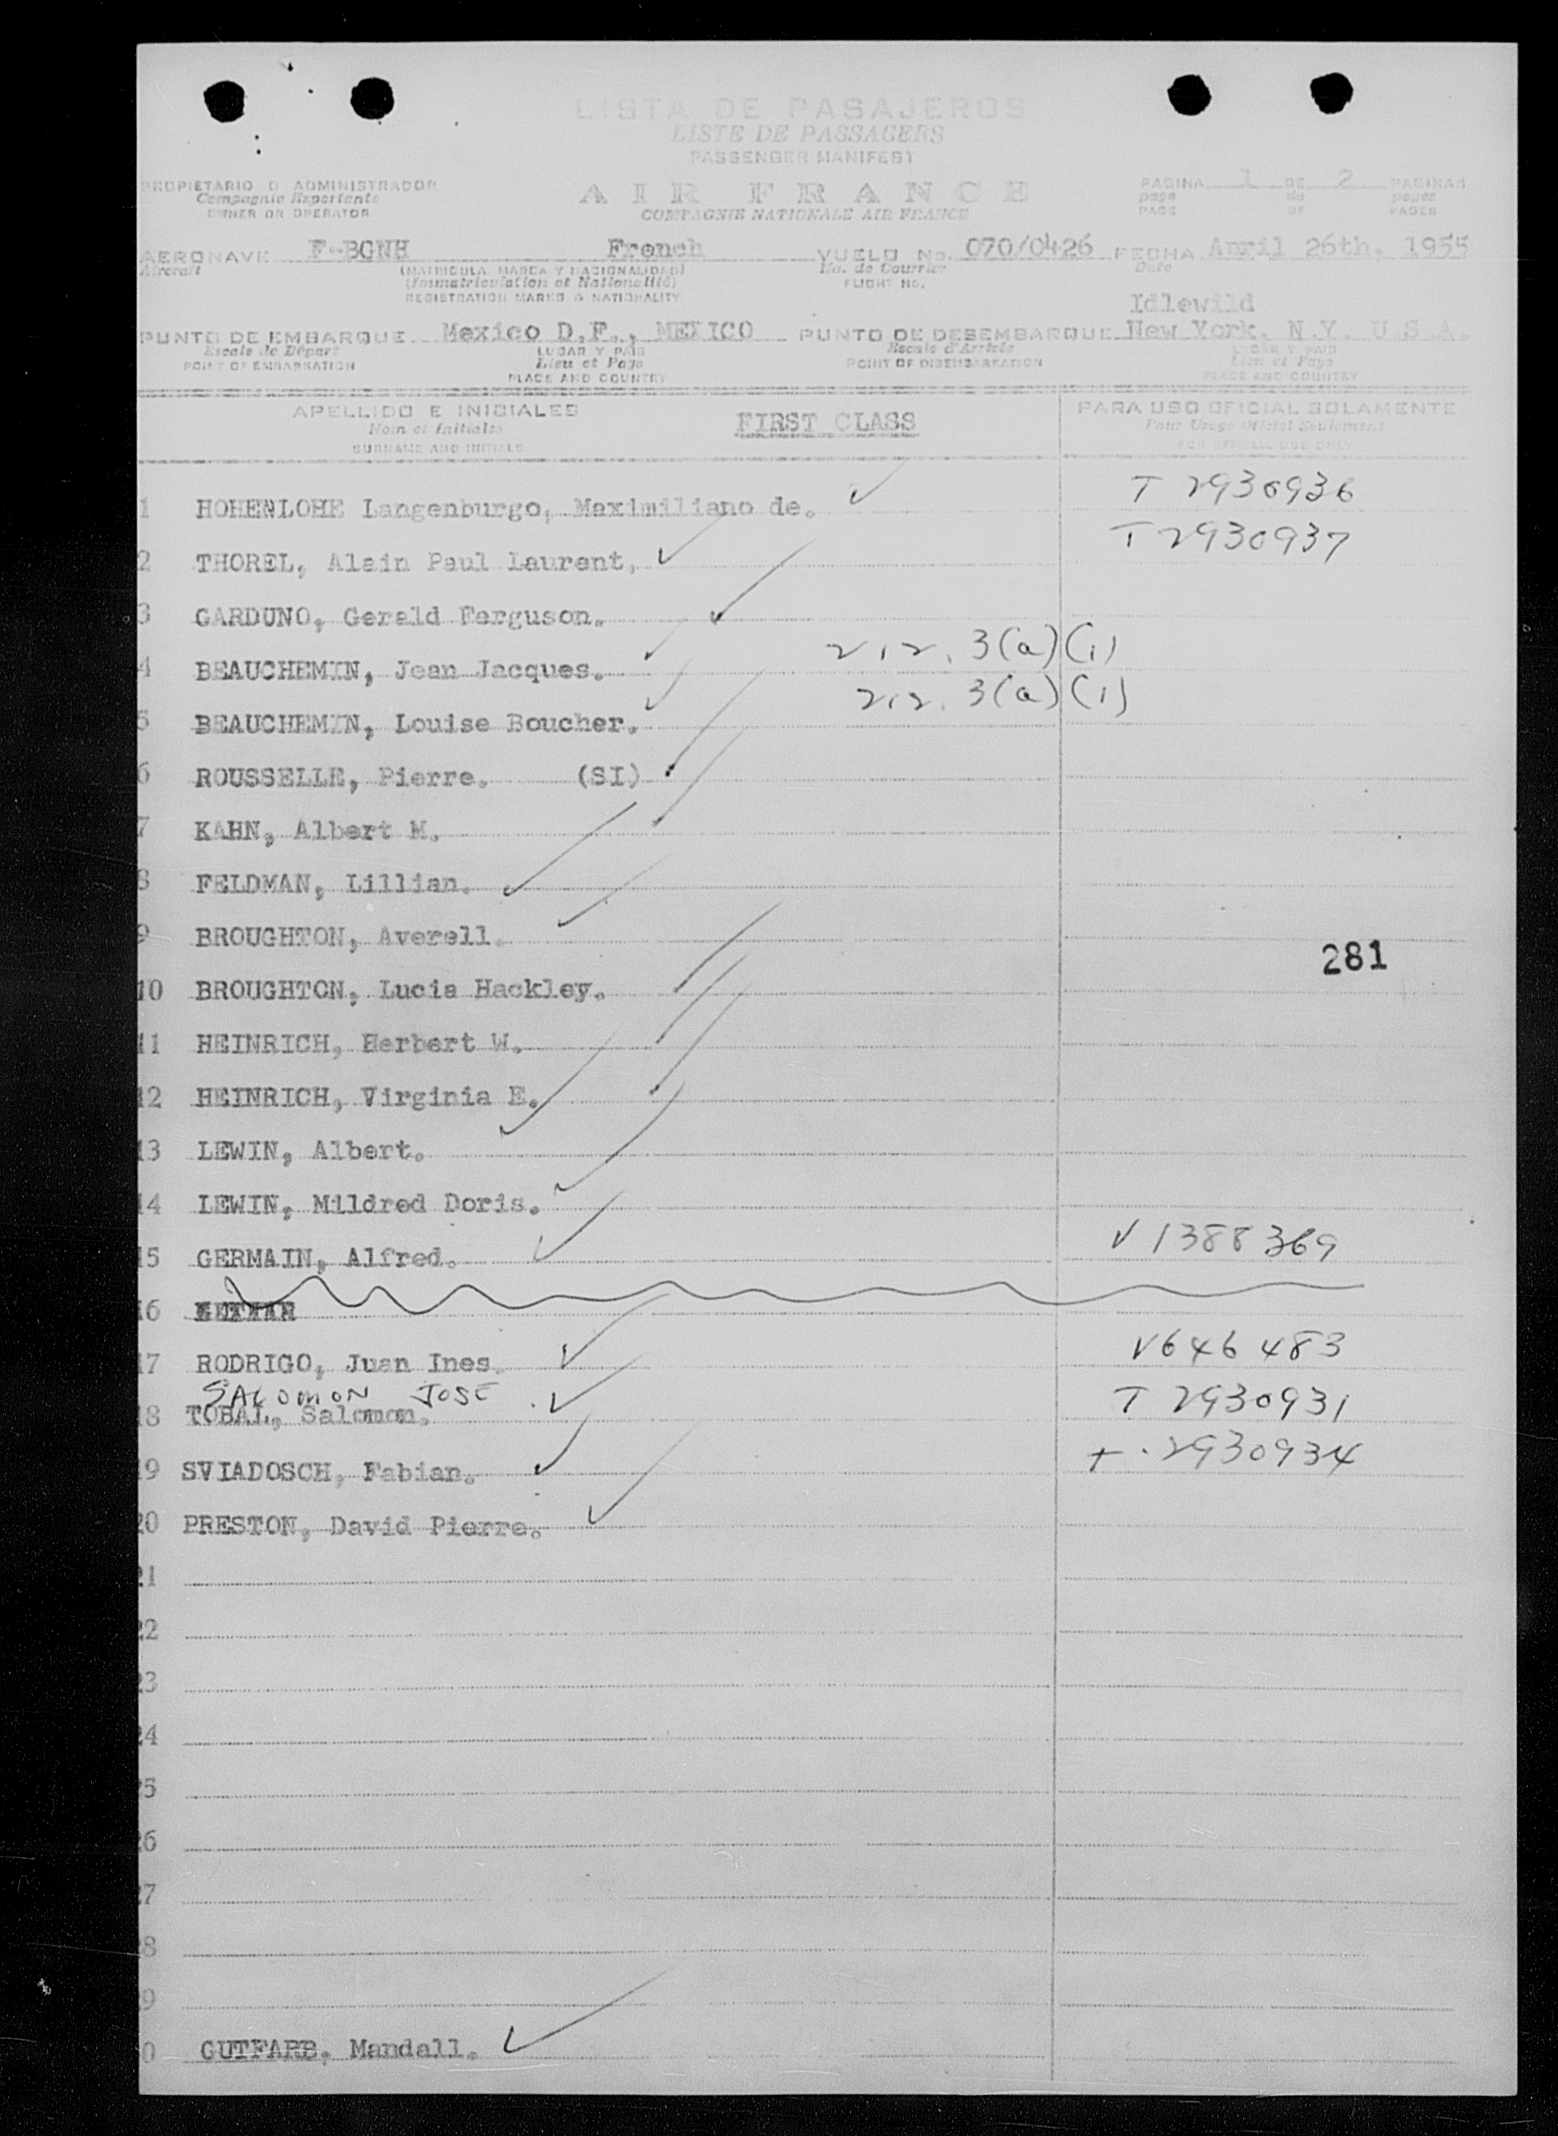 LISTA DE PASAJEROS
LISTE DE PASSAGERS
PASSENGER MANIFEST
PROPIETARIO O ADMINISTRADOR
Compagnie Exportante
OWNER OR OPERATOR
AIR FRANCE
COMPAGNIE NATIONALE AIR FRANCE
PAGINA 1 DE 2 PAGINAS
page du pages
PAGE OF PAGES
AERONAVE F-BGNH French VUELO No. 070/0426 FECHA April 26th, 1955
Aircraft (MATRICULA, MARCA Y NACIONALIDAD) No. de Courrier Date
(Immatriculation et Nationalité) FLIGHT NO.
REGISTRATION MARKS & NATIONALITY
Idlewild
PUNTO DE EMBARQUE Mexico D.F., MEXICO PUNTO DE DESEMBARQUE New York, N.Y. U.S.A.
Escale de Départ LUGAR Y PAIS Escale d'Arrivée LUGAR Y PAIS
POINT OF EMBARKATION Lieu et Pays POINT OF DISEMBARKATION Lieu et Pays
PLACE AND COUNTRY PLACE AND COUNTRY
APELLIDO E INICIALES FIRST CLASS PARA USO OFICIAL SOLAMENTE
Nom et Initiales Pour Usage Officiel Seulement
SURNAME AND INITIALS FOR OFFICIAL USE ONLY
1 HOHENLOHE Langenburgo, Maximiliano de. T 2930936
2 THOREL, Alain Paul Laurent, T 2930937
3 GARDUNO, Gerald Ferguson.
4 BEAUCHEMIN, Jean Jacques. 212.3(a)(1)
5 BEAUCHEMIN, Louise Boucher. 212.3(a)(1)
6 ROUSSELLE, Pierre. (SI)
7 KAHN, Albert M.
8 FELDMAN, Lillian.
9 BROUGHTON, Averell.
281
10 BROUGHTON, Lucia Hackley.
11 HEINRICH, Herbert W.
12 HEINRICH, Virginia E.
13 LEWIN, Albert.
14 LEWIN, Mildred Doris.
15 GERMAIN, Alfred. V 1388369
16
17 RODRIGO, Juan Ines. V646483
SALOMON JOSE
18 TOBAL, Salomon. T 2930931
19 SVIADOSCH, Fabian. T.2930934
20 PRESTON, David Pierre.
21
22
23
24
25
26
27
28
29
0 GUTFARB, Mandall.